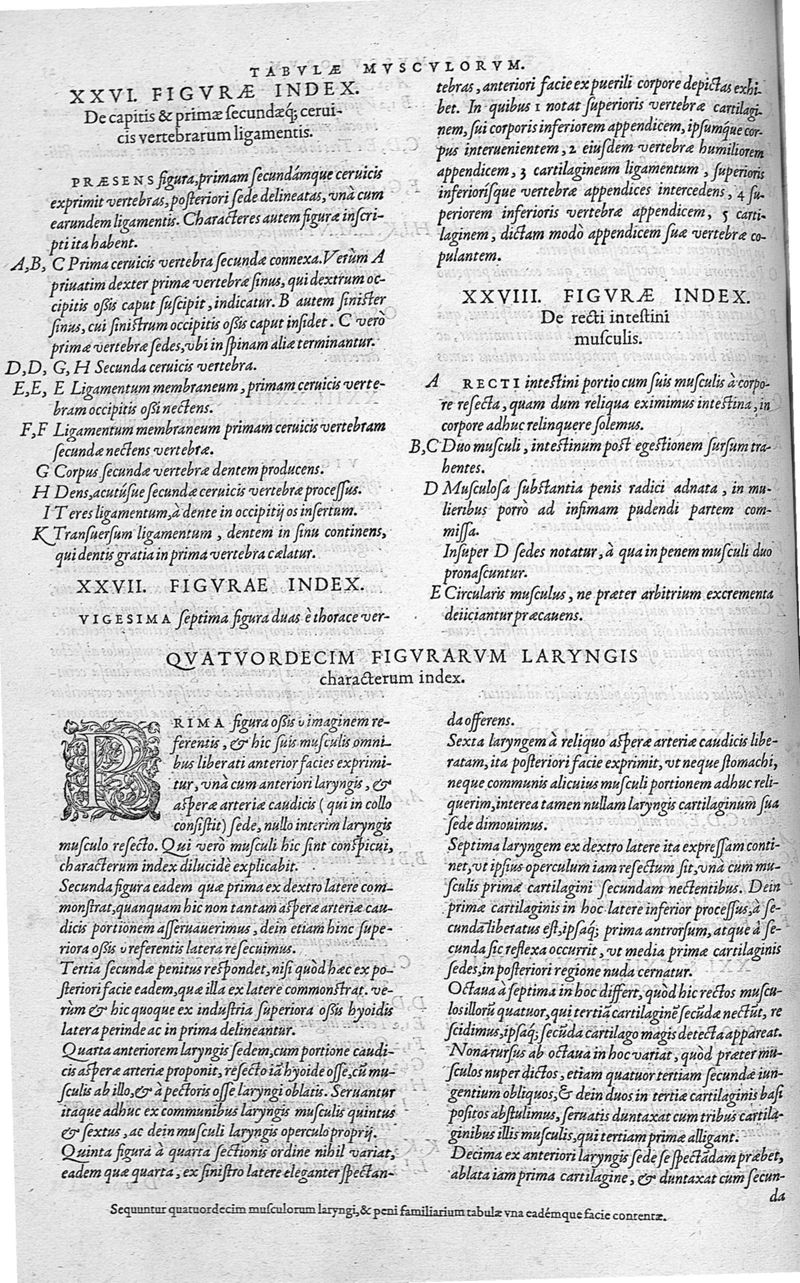 TABVLÆ MVSCVLORVM.
XXVI. FIGVRÆ INDEX.
De capitis & primæ secundæq́; cerui-
cis vertebrarum ligamentis.
PRÆSENS figura, primam secundámque ceruicis
exprimit vertebras, posteriori sede delineatas, vnà cum
earundem ligamentis. Characteres autem figuræ inscri-
pti ita habent.
A,B, C Prima ceruicis vertebra secundæ connexa. Verùm A
priuatim dexter primæ vertebræ sinus, qui dextrum oc-
cipitis ossis caput suscipit, indicatur. B autem sinister
sinus, cui sinistrum occipitis ossis caput insidet. C verò
primæ vertebræ sedes, vbi in spinam aliæ terminantur.
D,D, G,H Secunda ceruicis vertebra.
E,E, E Ligamentum membraneum, primam ceruicis verte-
bram occipitis ossi nectens.
F,F Ligamentum membraneum primam ceruicis vertebram
secundæ nectens vertebræ.
G Corpus secundæ vertebræ dentem producens.
H Dens, acutúsue secundæ ceruicis vertebræ processus.
I Teres ligamentum, à dente in occipitij os insertum.
K Transuersum ligamentum, dentem in sinu continens,
qui dentis gratia in prima vertebra cælatur.
XXVII. FIGVRAE INDEX.
VIGESIMA septima figura duas è thorace ver-
tebras, anteriori facie ex puerili corpore depictas exhi-
bet. In quibus 1 notat superioris vertebræ cartilagi-
nem, sui corporis inferiorem appendicem, ipsumq́ue cor-
pus interuenientem, 2 eiusdem vertebræ humiliorem
appendicem, 3 cartilagineum ligamentum, superioris
inferiorisque vertebræ appendices intercedens, 4 su-
periorem inferioris vertebræ appendicem, 5 carti-
laginem, dictam modò appendicem suæ vertebræ co-
pulantem.
XXVIII. FIGVRÆ INDEX.
De recti intestini
musculis.
A RECTI intestini portio cum suis musculis à corpo-
re resecta, quam dum reliqua eximimus intestina, in
corpore adhuc relinquere solemus.
B,C Duo musculi, intestinum post egestionem sursum tra-
hentes.
D Musculosa substantia penis radici adnata, in mu-
lieribus porrò ad infimam pudendi partem com-
missa.
Insuper D sedes notatur, à qua in penem musculi duo
pronascuntur.
E Circularis musculus, ne præter arbitrium excrementa
deijciantur præcauens.
QVATVORDECIM FIGVRARVM LARYNGIS
characterum index.
PRIMA figura ossis υ imaginem re-
ferentis, & hic suis musculis omni-
bus liberati anterior facies exprimi-
tur, vnà cum anteriori laryngis, &
asperæ arteriæ caudicis (qui in collo
consistit) sede, nullo interim laryngis
musculo resecto. Qui verò musculi hic sint conspicui,
characterum index dilucidè explicabit.
Secunda figura eadem quæ prima ex dextro latere com-
monstrat, quanquam hic non tantam asperæ arteriæ cau-
dicis portionem asseruauerimus, dein etiam hinc supe-
riora ossis υ referentis latera resecuimus.
Tertia secundæ penitus respondet, nisi quòd hæc ex po-
steriori facie eadem, quæ illa ex latere commonstrat. ve-
rùm & hic quoque ex industria superiora ossis hyoidis
latera perinde ac in prima delineantur.
Quarta anteriorem laryngis sedem, cum portione caudi-
cis asperæ arteriæ proponit, resecto iā hyoide osse, cū mu-
sculis ab illo, & à pectoris osse laryngi oblatis. Seruantur
itaque adhuc ex communibus laryngis musculis quintus
& sextus, ac dein musculi laryngis operculo proprij.
Quinta figura à quarta sectionis ordine nihil variat,
eadem quæ quarta, ex sinistro latere eleganter spectan-
da offerens.
Sexta laryngem à reliquo asperæ arteriæ caudicis libe-
ratam, ita posteriori facie exprimit, vt neque stomachi,
neque communis alicuius musculi portionem adhuc reli-
querim, interea tamen nullam laryngis cartilaginum sua
sede dimouimus.
Septima laryngem ex dextro latere ita expressam conti-
net, vt ipsius operculum iam resectum sit, vnà cum mu-
sculis primæ cartilagini secundam nectentibus. Dein
primæ cartilaginis in hoc latere inferior processus, à se-
cunda liberatus est, ipsaq́; prima antrorsum, atque à se-
cunda sic reflexa occurrit, vt media primæ cartilaginis
sedes, in posteriori regione nuda cernatur.
Octaua à septima in hoc differt, quòd hic rectos muscu-
los illorū quatuor, qui tertiā cartilaginē secūdæ nectūt, re
scidimus, ipsaq́; secūda cartilago magis detecta appareat.
Nona rursus ab octaua in hoc variat, quòd præter mu-
sculos nuper dictos, etiam quatuor tertiam secundæ iun-
gentium obliquos, & dein duos in tertiæ cartilaginis basi
positos abstulimus, seruatis duntaxat cum tribus cartila-
ginibus illis musculis, qui tertiam primæ alligant.
Decima ex anteriori laryngis sede se spectādam præbet,
ablata iam prima cartilagine, & duntaxat cum secun-
da
Sequuntur quatuordecim musculorum laryngi, & peni familiarium tabulæ vna eadémque facie contentæ.